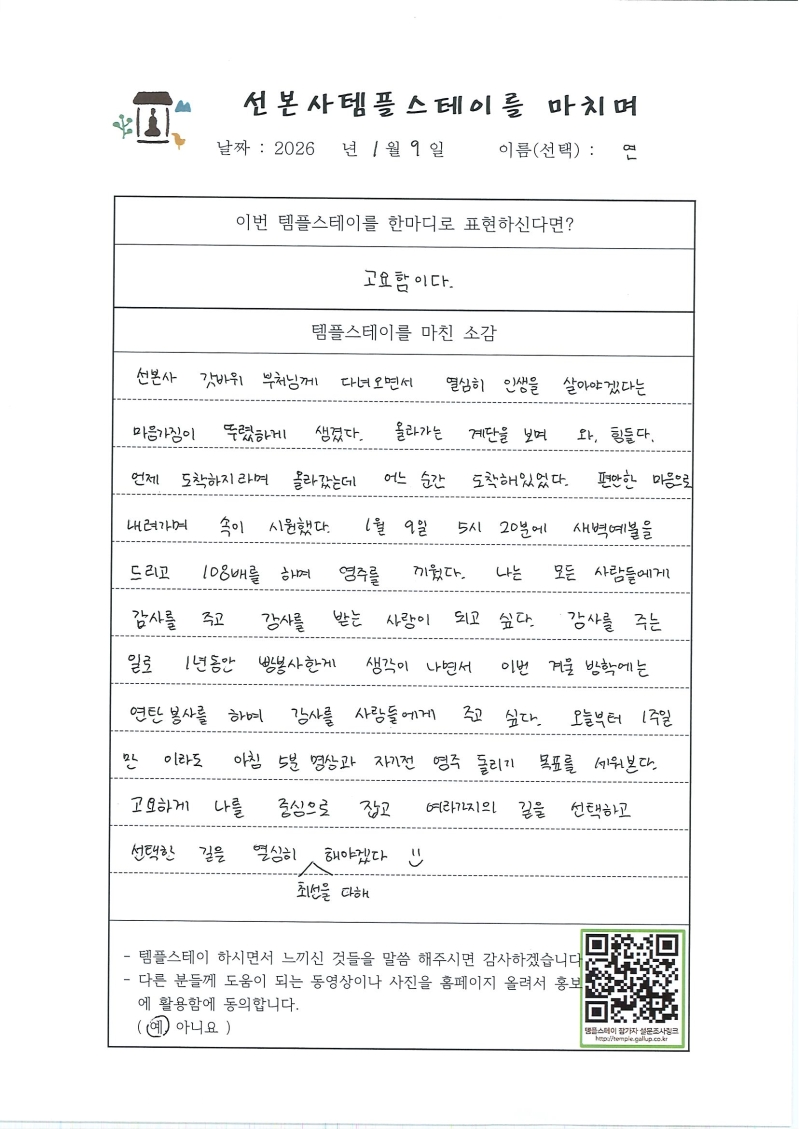 선본사템플스테이를 마치며
날짜 : 2026 년 1월 9일 이름(선택) : 연
이번 템플스테이를 한마디로 표현하신다면?
고요함이다.
템플스테이를 마친 소감
선본사 갓바위 부처님께 다녀오면서 열심히 인생을 살아야겠다는
마음가짐이 뚜렷하게 생겼다. 올라가는 계단을 보며 와, 힘들다.
언제 도착하지라며 올라갔는데 어느 순간 도착해있었다. 편안한 마음으로
내려가며 속이 시원했다. 1월 9일 5시 20분에 새벽예불을
드리고 108배를 하며 염주를 끼웠다. 나는 모든 사람들에게
감사를 주고 감사를 받는 사람이 되고 싶다. 감사를 주는
일로 1년동안 빵봉사한게 생각이 나면서 이번 겨울 방학에는
연탄 봉사를 하며 감사를 사람들에게 주고 싶다. 오늘부터 1주일
만 이라도 아침 5분 명상과 자기전 염주 돌리기 목표를 세워본다.
고요하게 나를 중심으로 잡고 여러가지의 길을 선택하고
선택한 길은 열심히 해야겠다
최선을 다해
- 템플스테이 하시면서 느끼신 것들을 말씀 해주시면 감사하겠습니다
- 다른 분들께 도움이 되는 동영상이나 사진을 홈페이지 올려서 홍보
에 활용함에 동의합니다.
( 예, 아니요 )
템플스테이 참가자 설문조사링크
http://temple.gallup.co.kr